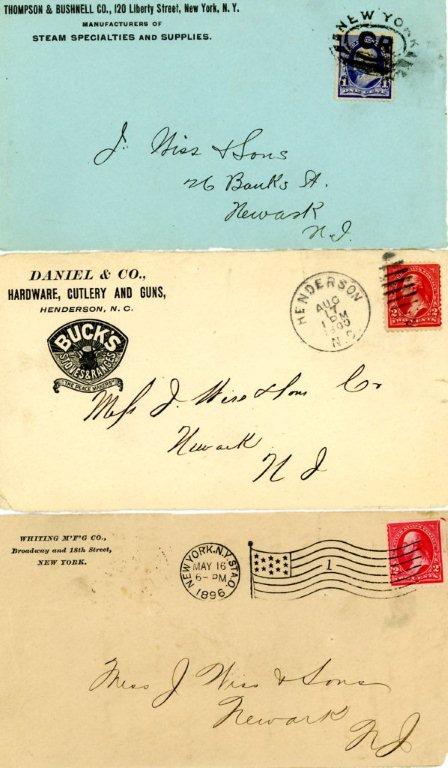 THOMPSON & BUSHNELL CO., 120 Liberty Street, New York, N. Y.
MANUFACTURERS OF
STEAM SPECIALTIES AND SUPPLIES.
NEW YORK
1 1
ONE CENT
J. Wiss & Sons
26 Banks St.
Newark
N.J.
DANIEL & CO.,
HARDWARE, CUTLERY AND GUNS,
HENDERSON, N. C.
BUCK'S
STOVES & RANGES
HENDERSON
AUG
17
1 PM
1900
N.C.
2 2
TWO CENTS
Mess J. Wiss & Sons Co
Newark
N J
WHITING M'F'G CO.,
Broadway and 18th Street,
NEW YORK.
NEW YORK, N.Y. STA. O.
MAY 16
6- PM
1896
1
2 2
Mess J Wiss & Sons
Newark
NJ